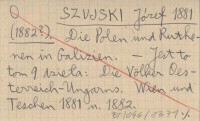 SZUJSKI Józef 1881
(1882?). Die Polen und Ruthe-
nen in Galizien. Jest to
tom 9 dzieła: Die Völker Oes-
terreich-Ungarns. Wien und
Teschen 1881 u. 1882.